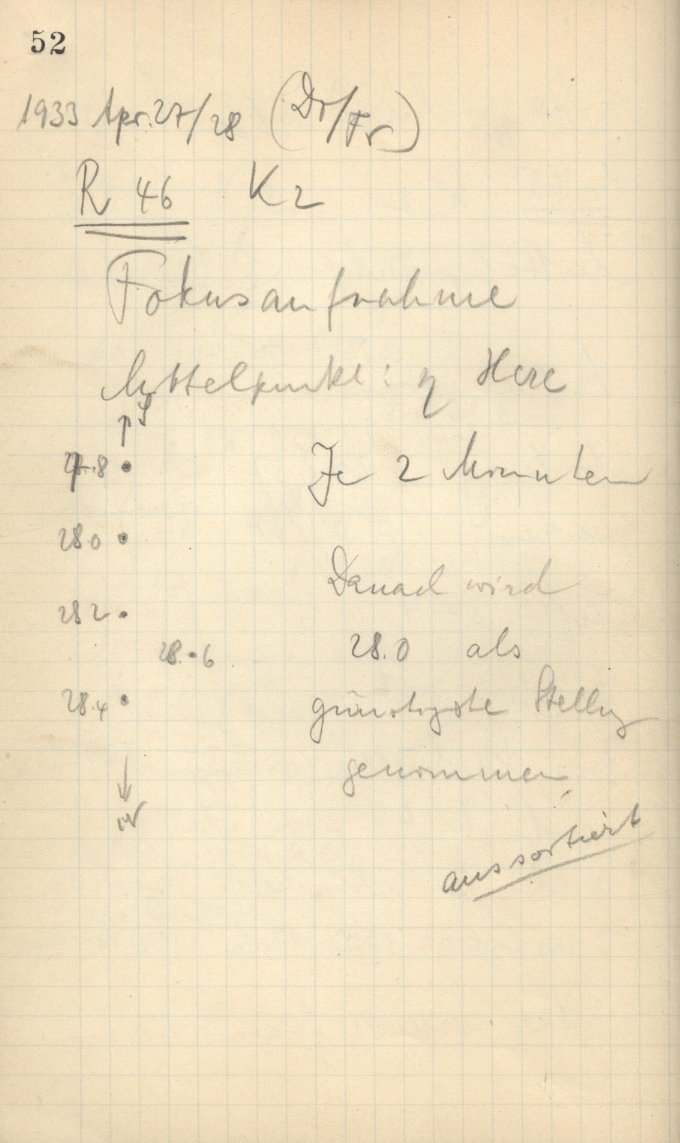 52
1933 Apr. 27/28 (Dr/Fr)
R 46 K 2
Fokusaufnahme
Mittelpunkt: η Herc
↑ S
27.8 • Je 2 Minuten
28.0 •
Danach wird
28.2 •
28.•6 28.0 als
28.4 • günstigste Stellg
genommen
↓
N
aussortiert